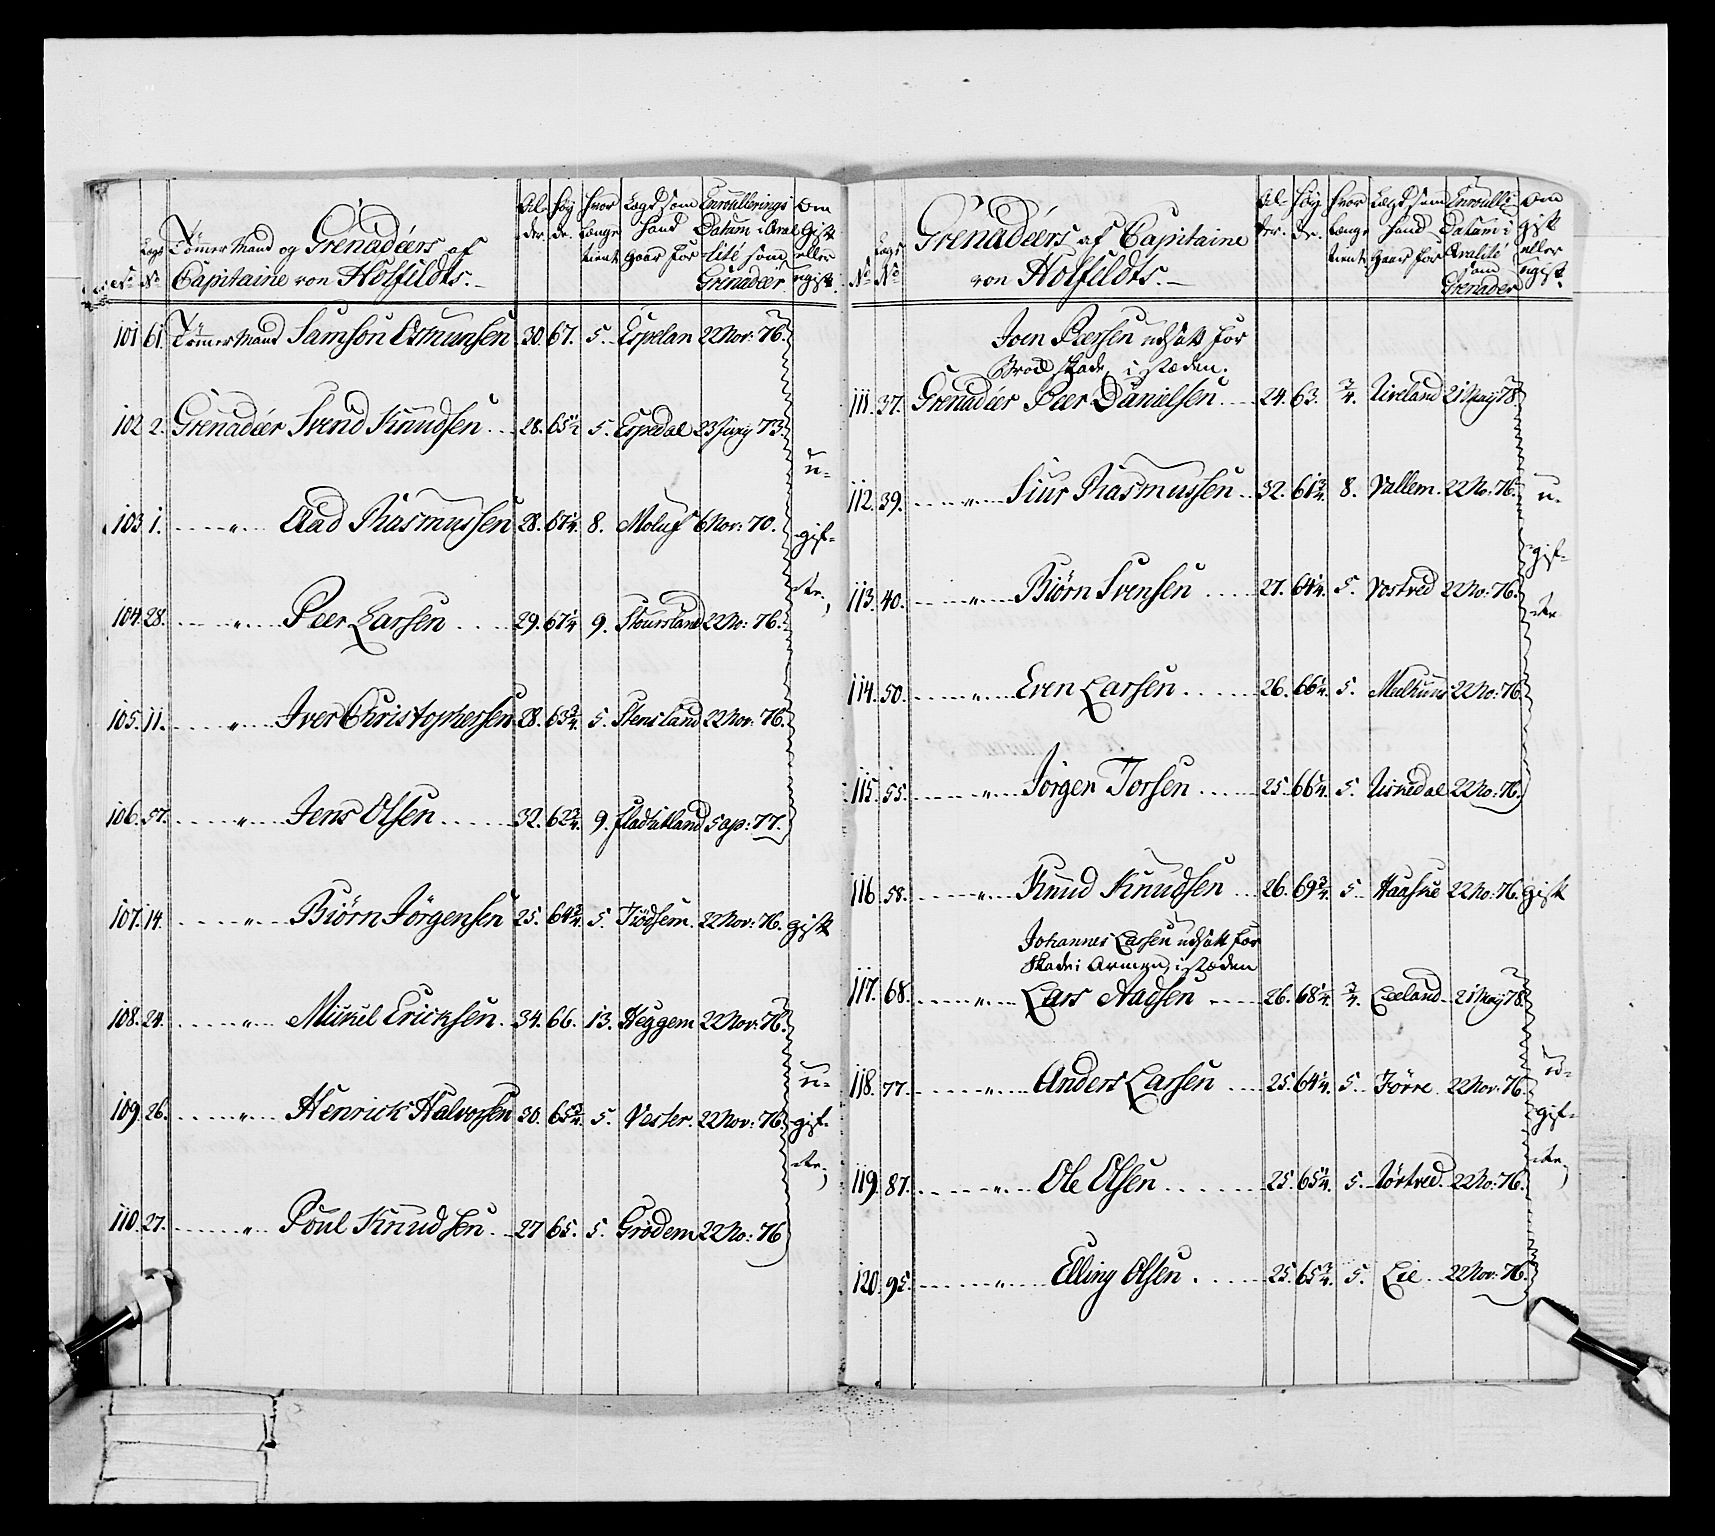 No Lægs No Tømmer Mand og Grenadéers af Capitaine von Holfeldts. Al-der. Høyde. hvor Længe tient Lægd som hand gaar for Enroullerings Datum i Qvalité som Grenadeer Om Gift eller ugift.
101. 61. Tømmer Mand Samson Osmunsen 30. 67. 5. Espelan 22 Nov: 76.
102 2. Grenadéer Svend Knudsen 28. 65½ 5. Espedal 23 Juny 73.
103 1. " Aad Rasmussen 28. 67¼ 8. Moluf 6 Nov: 70.
u-gif-te,
104. 28. " Peer Larsen 29. 67¼ 9. 22 No: 76.
105. 11. " Iver Christophersen 28. 63¾. 5. Stensland 22 Nov: 76.
106. 57. " Jens Olsen 32. 62¾. 9. 5 ap: 77.
107. 14. " Biørn Jörgensen 25. 64¾. 5. Tiödsem. 22 Nov: 76. gift
108. 24. " Mickel Ericksen. 34. 66. 13. Heggem 22 Nov: 76.
109. 26. " Henrick Halvorsen 30. 65¾. 5. Vester. 22 Nov: 76.
u-gif-te,
110. 27. " Poul Knudsen 27 65. 5. Grødem 22 No: 76
No Lægs No Grenadéers af Capitaine von Holfeldts. Al-der. Høyde. hvor Længe tient Lægd som hand gaar for Enroulle Datum i Qvalité som Grenader Om gift eller ugift.
Joen Peersen udsatt for
Brock skade, i stæden.
111. 37. Grenadéer Peer Danielsen 24. 63. ¾. 21 May 78
112. 39. " Siur Rasmussen 32. 61¾. 8. Vallem. 22 No: 76.
u-gif-te
113. 40. " Biørn Svensen 27. 64¼. 5. Vostved 22 No: 76.
114. 50. " Even Larsen 26. 66¼. 5. 22 No: 76
115. 55. " Jörgen Torsen 25. 66¼. 5. 22 No: 76.
116. 58. " Knud Knudsen 26. 69¾. 5. Haaskie 22 No: 76. gift
Johannes Larsen udsatt for
skade i Armen, i stæden
117. 68. " Lars Aadsen 26. 68¼. ¾. Leeland 21 May 78.
118. 77. " Anders Larsen 25. 64¼. 5. Jörre 22 Nov: 76
u-gif-te,
119. 87. " Ole Olsen 25. 65¼. 5. 22 No: 76.
120. 95. " Elling Olsen. 25. 65¾. 5. Lie 22 Nov: 76.